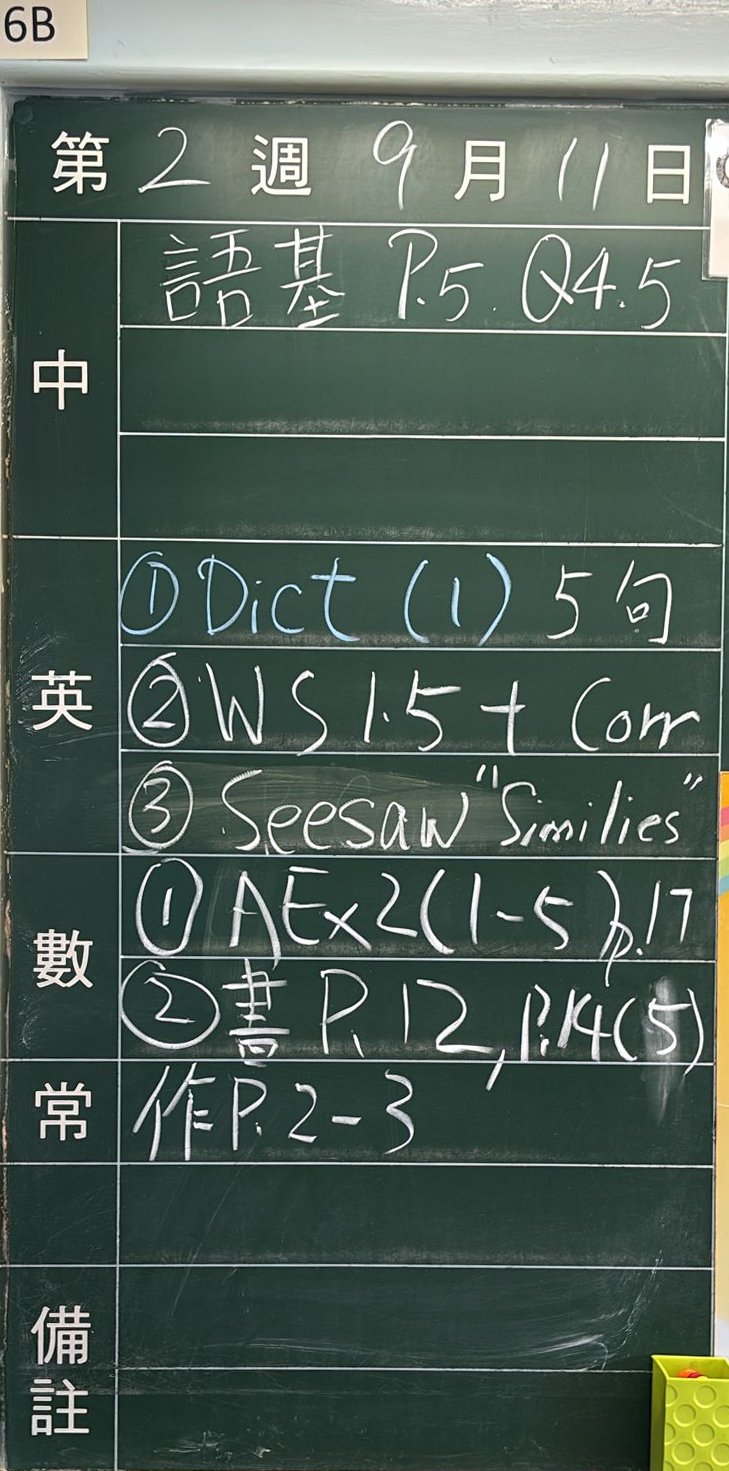 6B
第 2 週 9 月 11 日
中
語基 P.5. Q4.5
英
① Dict (1) 5句
② WS 1.5 + Corr
③ Seesaw "Similies"
數
① AEx2(1-5) p.17
② 書 P.12, P.14(5)
常
作P.2-3
備註